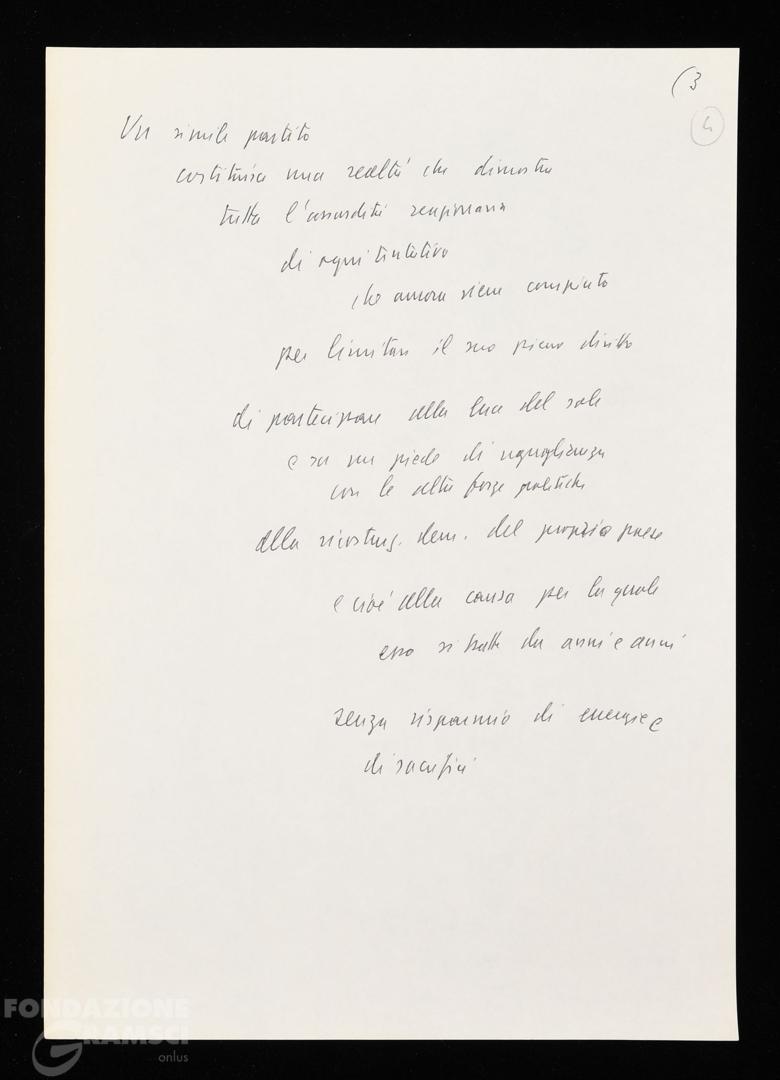 (3
4
Un simile partito
costituisce una realtà che dimostra
tutta l'assurdità reazionaria
di ogni tentativo
che ancora viene compiuto
per limitare il suo pieno diritto
di partecipare alla luce del sole
e su un piede di uguaglianza
con le altre forze politiche
alla ricostruz. dem. del proprio paese
e cioè alla causa per la quale
esso si batte da anni e anni
senza risparmio di energie e
di sacrifici
FONDAZIONE
GRAMSCI
onlus